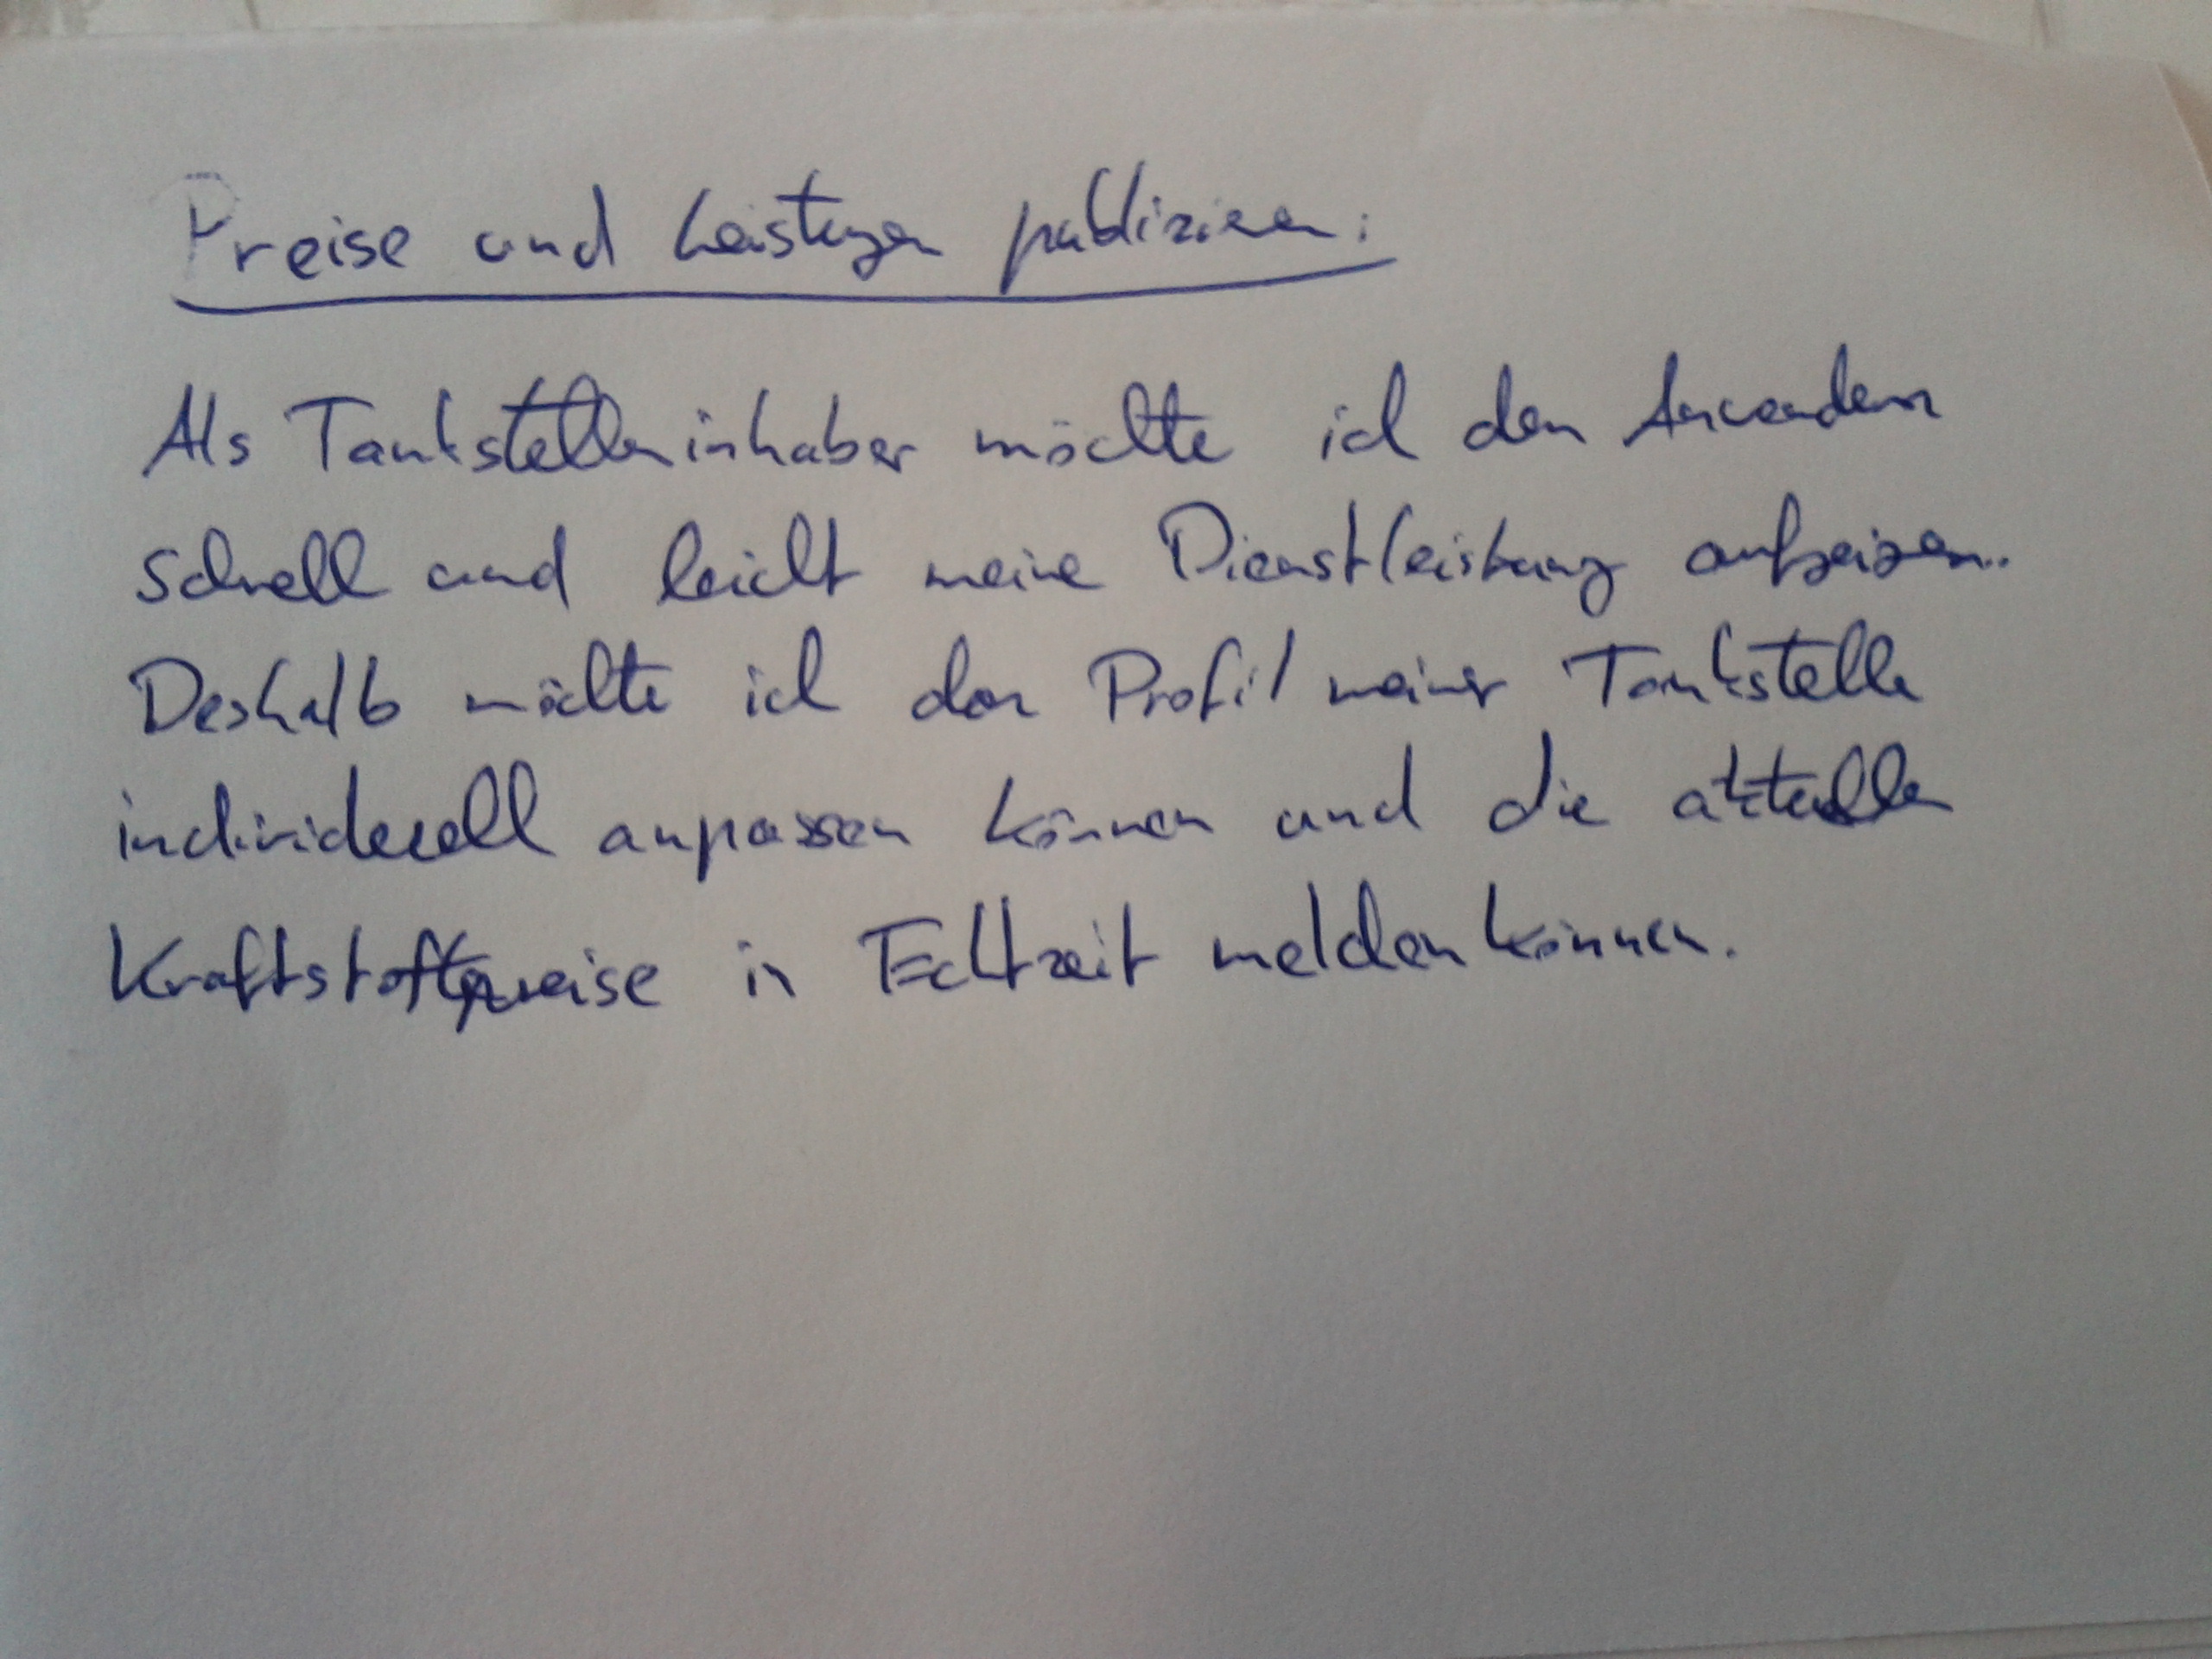 Preise und Leistungen publizieren:
Als Tankstelleninhaber möchte ich den Anwendern
schnell und leicht meine Dienstleistung aufzeigen.
Deshalb möchte ich das Profil meiner Tankstelle
individuell anpassen können und die aktuellen
Kraftstoffpreise in Echtzeit melden können.